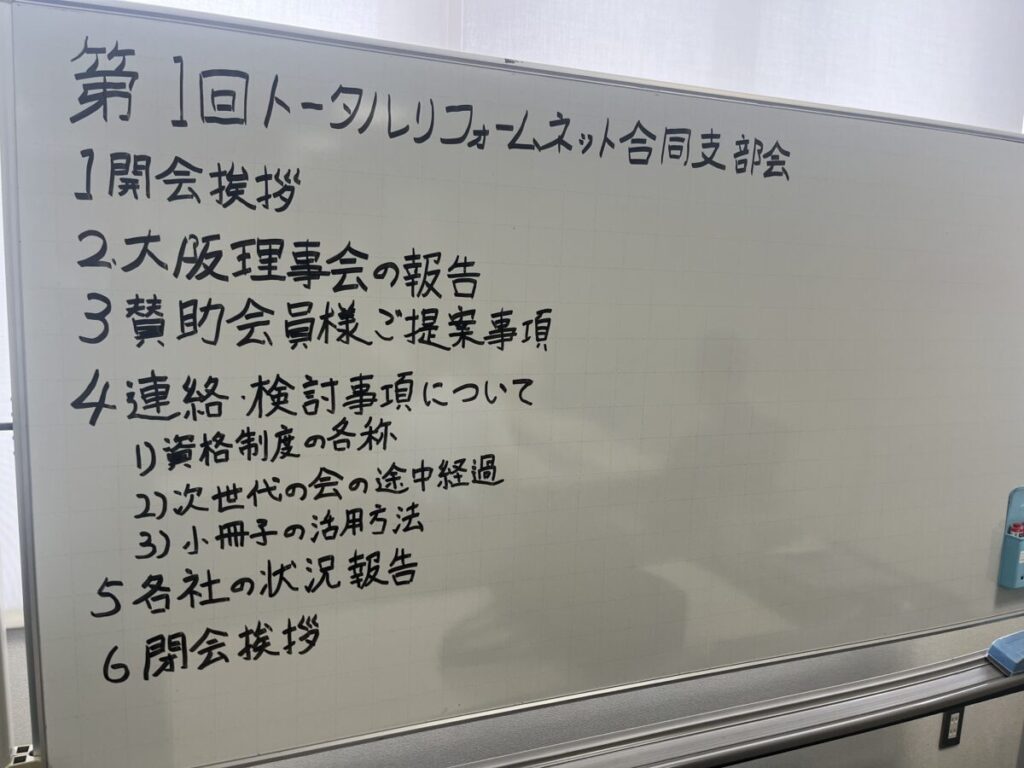 第1回トータルリフォームネット合同支部会
1開会挨拶
2.大阪理事会の報告
3賛助会員様ご提案事項
4連絡・検討事項について
1)資格制度の各称
2)次世代の会の途中経過
3)小冊子の活用方法
5各社の状況報告
6閉会挨拶